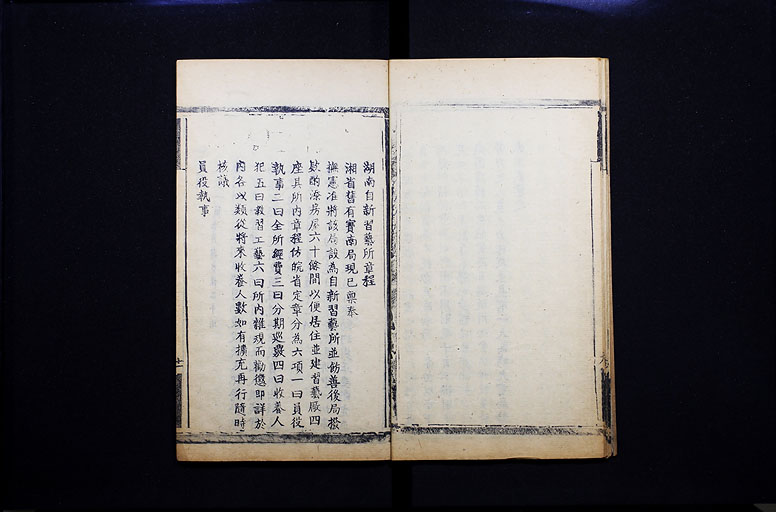 湖南自新習藝所章程
湘省舊有實南局現已稟奉
撫憲准將該局設為自新習藝所並飭善後局撥
款酌添房屋六十餘間以便居住並建習藝廠四
座其所內章程仿皖省定章分為六項一曰員役
執事二曰全所經費三曰分期巡徼四曰收養人
犯五曰教習工藝六曰所內雜規而勸懲即詳於
內各以類從將來收養人數如有擴充再行隨時
核議
員役執事